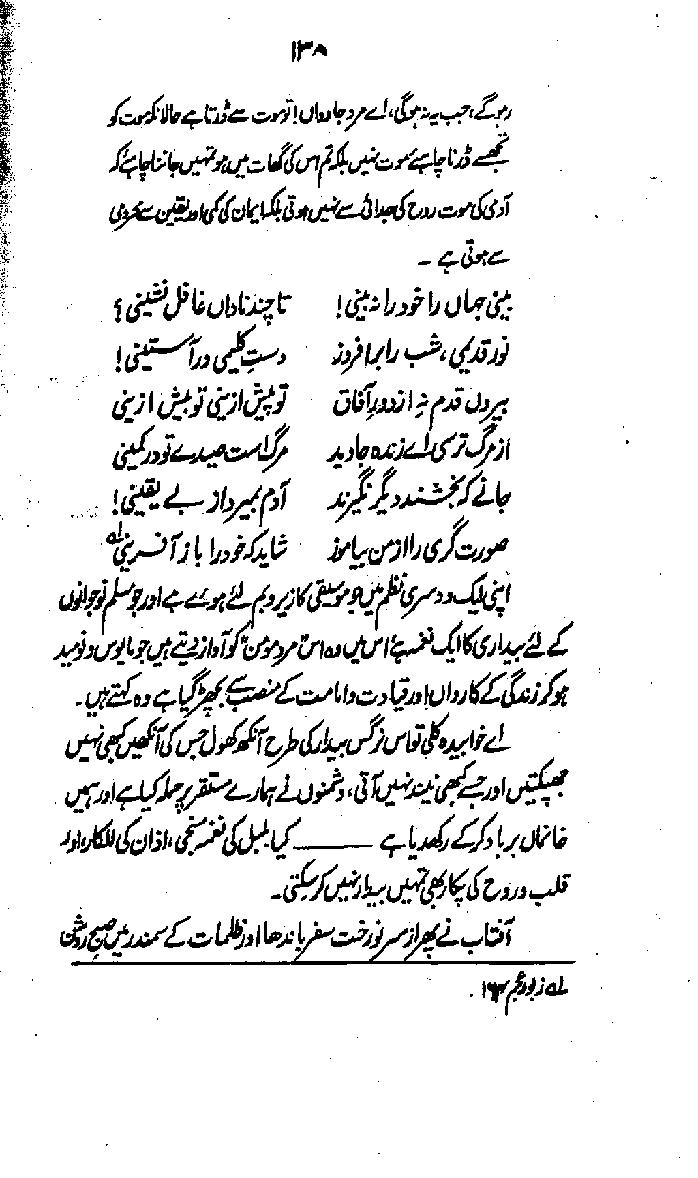 ۱۳۸
رہو گے، جب یہ نہ ہوگی، اے مرد جاوداں! تو موت سے ڈرتا ہے حالانکہ موت کو
تجھ سے ڈرنا چاہیے موت نہیں بلکہ تم اس کی گھات میں ہو تمہیں جاننا چاہئے کہ
آدمی کی موت روح کی جدائی سے نہیں ہوتی بلکہ ایمان کی کمی اور یقین سے محرومی
سے ہوتی ہے ۔
بینی جہاں را خود را نہ بینی! تا چند ناداں غافل نشینی؟
نور قدیمی، شب را برافروز دستِ کلیمی در آستینی!
بیروں قدم نہ از دورِ آفاق تو پیش ازینی تو بیش ازینی
از مرگ ترسی اے زندہ جاوید مرگ است صیدے تو در کمینی
جانے کہ بخشند دیگر نگیرند آدم بمیرد از بے یقینی!
صورت گری را از من بیاموز شاید کہ خود را باز آفرینی لہ
اپنی ایک دوسری نظم میں جو موسیقی کا زیر و بم لئے ہوئے ہے اور جو مسلم نوجوانوں
کے لئے بیداری کا ایک نغمہ ہے اس میں وہ اس "مرد مومن" کو آواز دیتے ہیں جو مایوس و نومید
ہو کر زندگی کے کارواں اور قیادت و امامت کے منصب سے بچھڑ گیا ہے وہ کہتے ہیں۔
اے خوابیدہ کلی تو اس نرگس بیدار کی طرح آنکھ کھول جس کی آنکھیں کبھی نہیں
جھپکتیں اور جسے کبھی نیند نہیں آتی، دشمنوں نے ہمارے مستقر پر حملہ کیا ہے اور ہمیں
خانماں برباد کرکے رکھدیا ہے ——— کیا بلبل کی نغمہ سنجی، اذان کی للکار، اور
قلب و روح کی پکار بھی تمہیں بیدار نہیں کرسکتی۔
آفتاب نے پھر از سر نو رخت سفر باندھا اور ظلمات کے سمندر میں صبح روشن
لہ زبور عجم ۔